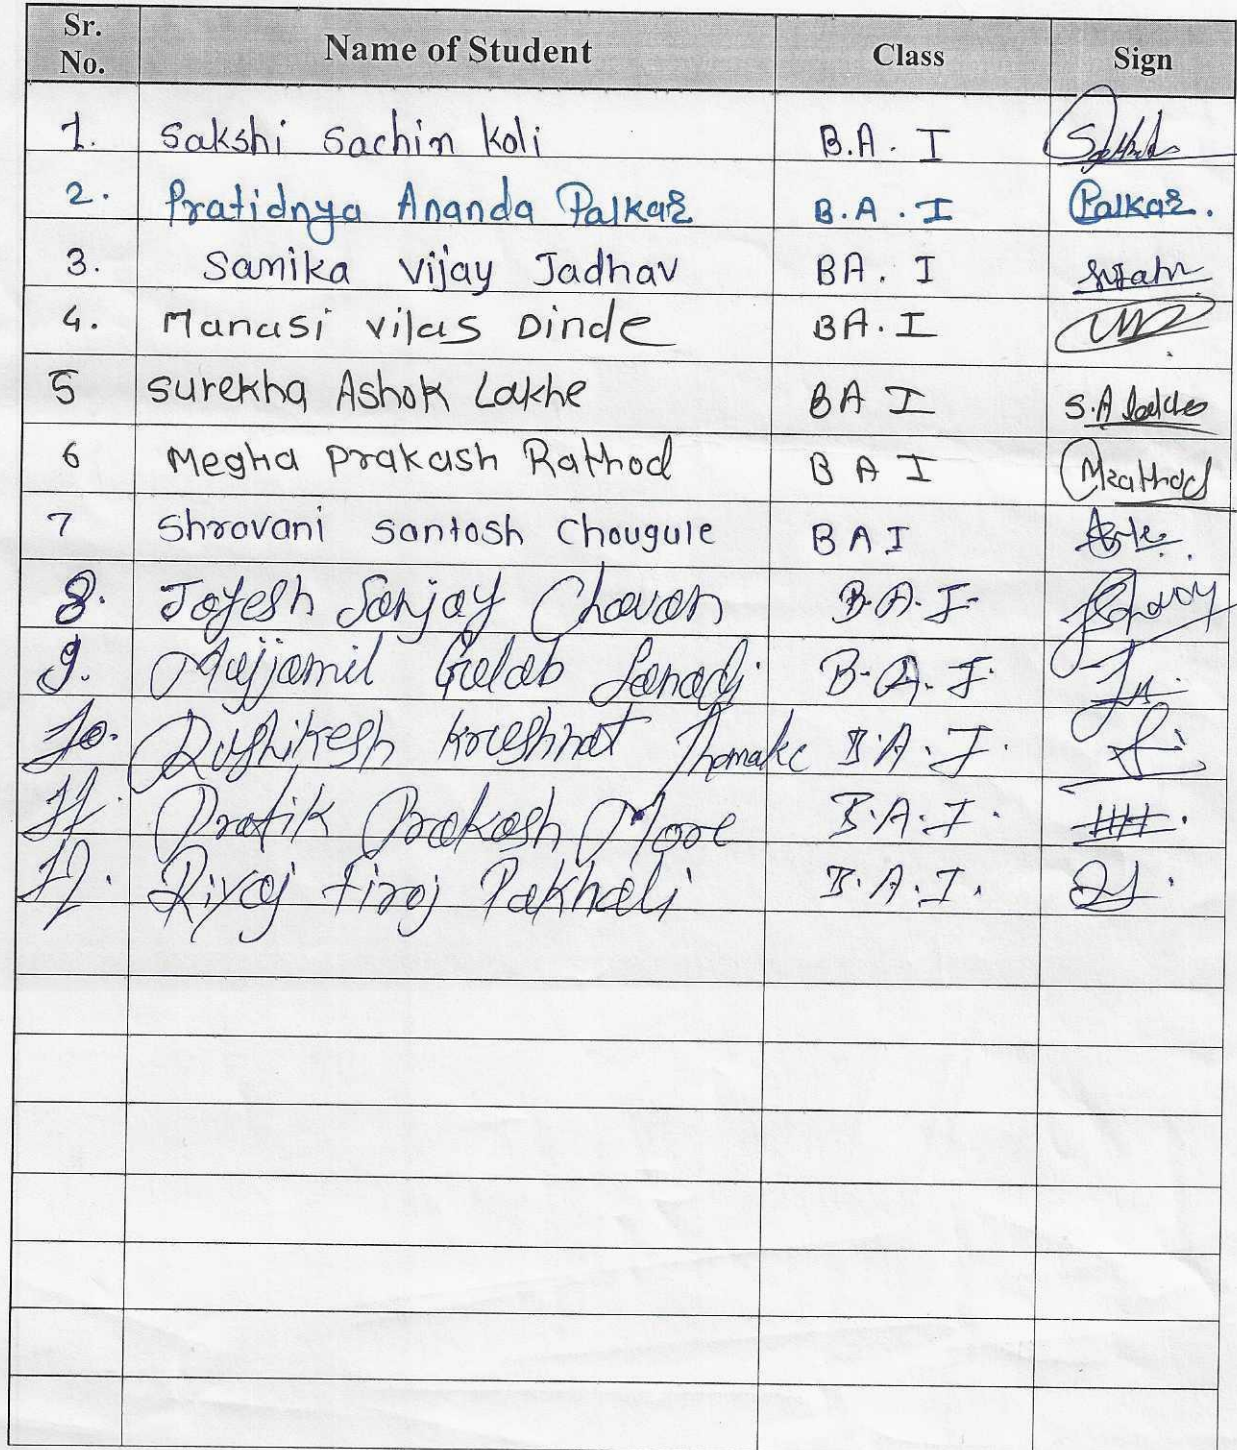 Sr. No. Name of Student Class Sign
1. Sakshi Sachin Koli B.A. I
2. Pratidnya Ananda Palkar B.A. I Palkar.
3. Samika Vijay Jadhav BA. I
4. Manasi Vilas Dinde BA. I
5 Surekha Ashok Lakhe BA I S.A Lakhe
6 Megha Prakash Rathod B A I MRathod
7 Shravani Santosh Chougule BAI
8. Sanjay Chavan B.A.I.
9. Mujjamil Gulab Sanadi B.A.I.
10. Rushikesh B.A.I.
11. Pratik Prakash More B.A.I.
12. Riyaj Firoj Pakhali B.A.I.